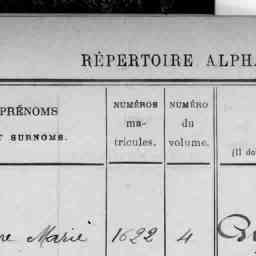 RÉPERTOIRE ALPHA
PRÉNOMS
T SURNOMS.
NUMÉROS
ma-
tricules.
NUMÉRO
du
volume.
(Il do
re Marie 1622 4